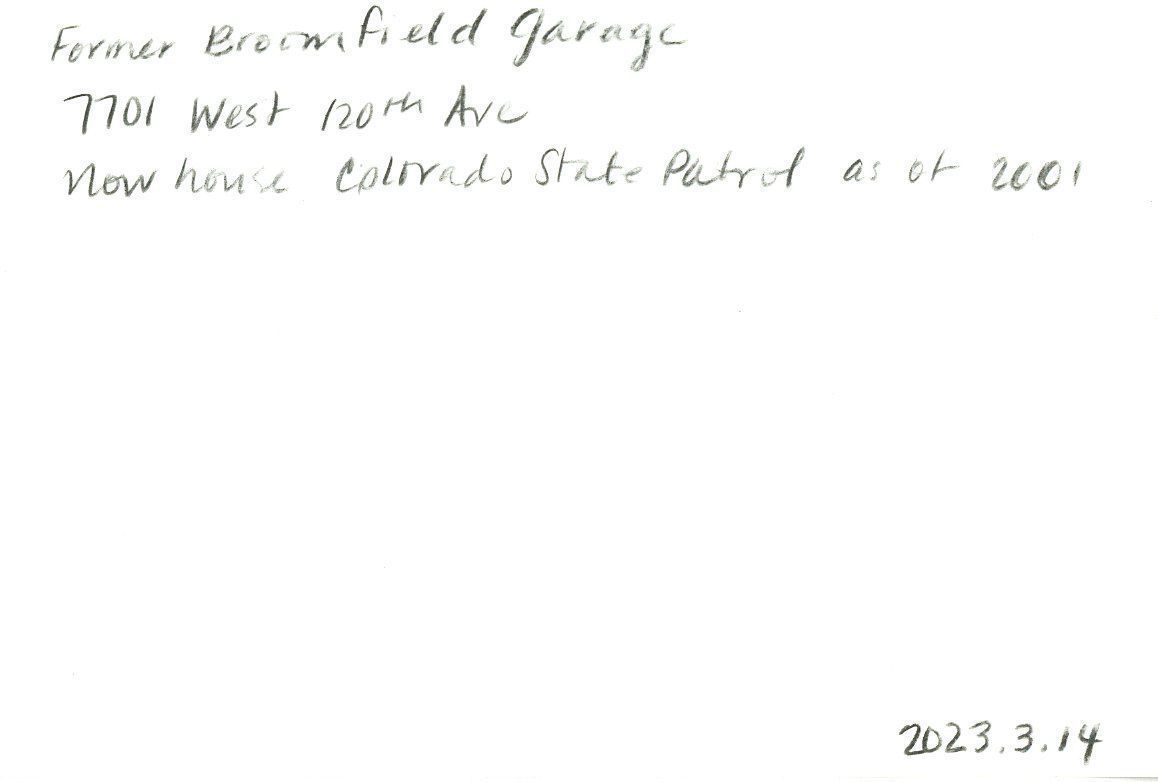 Former Broomfield Garage
7701 West 120th Ave
Now house Colorado State Patrol as of 2001
2023.3.14